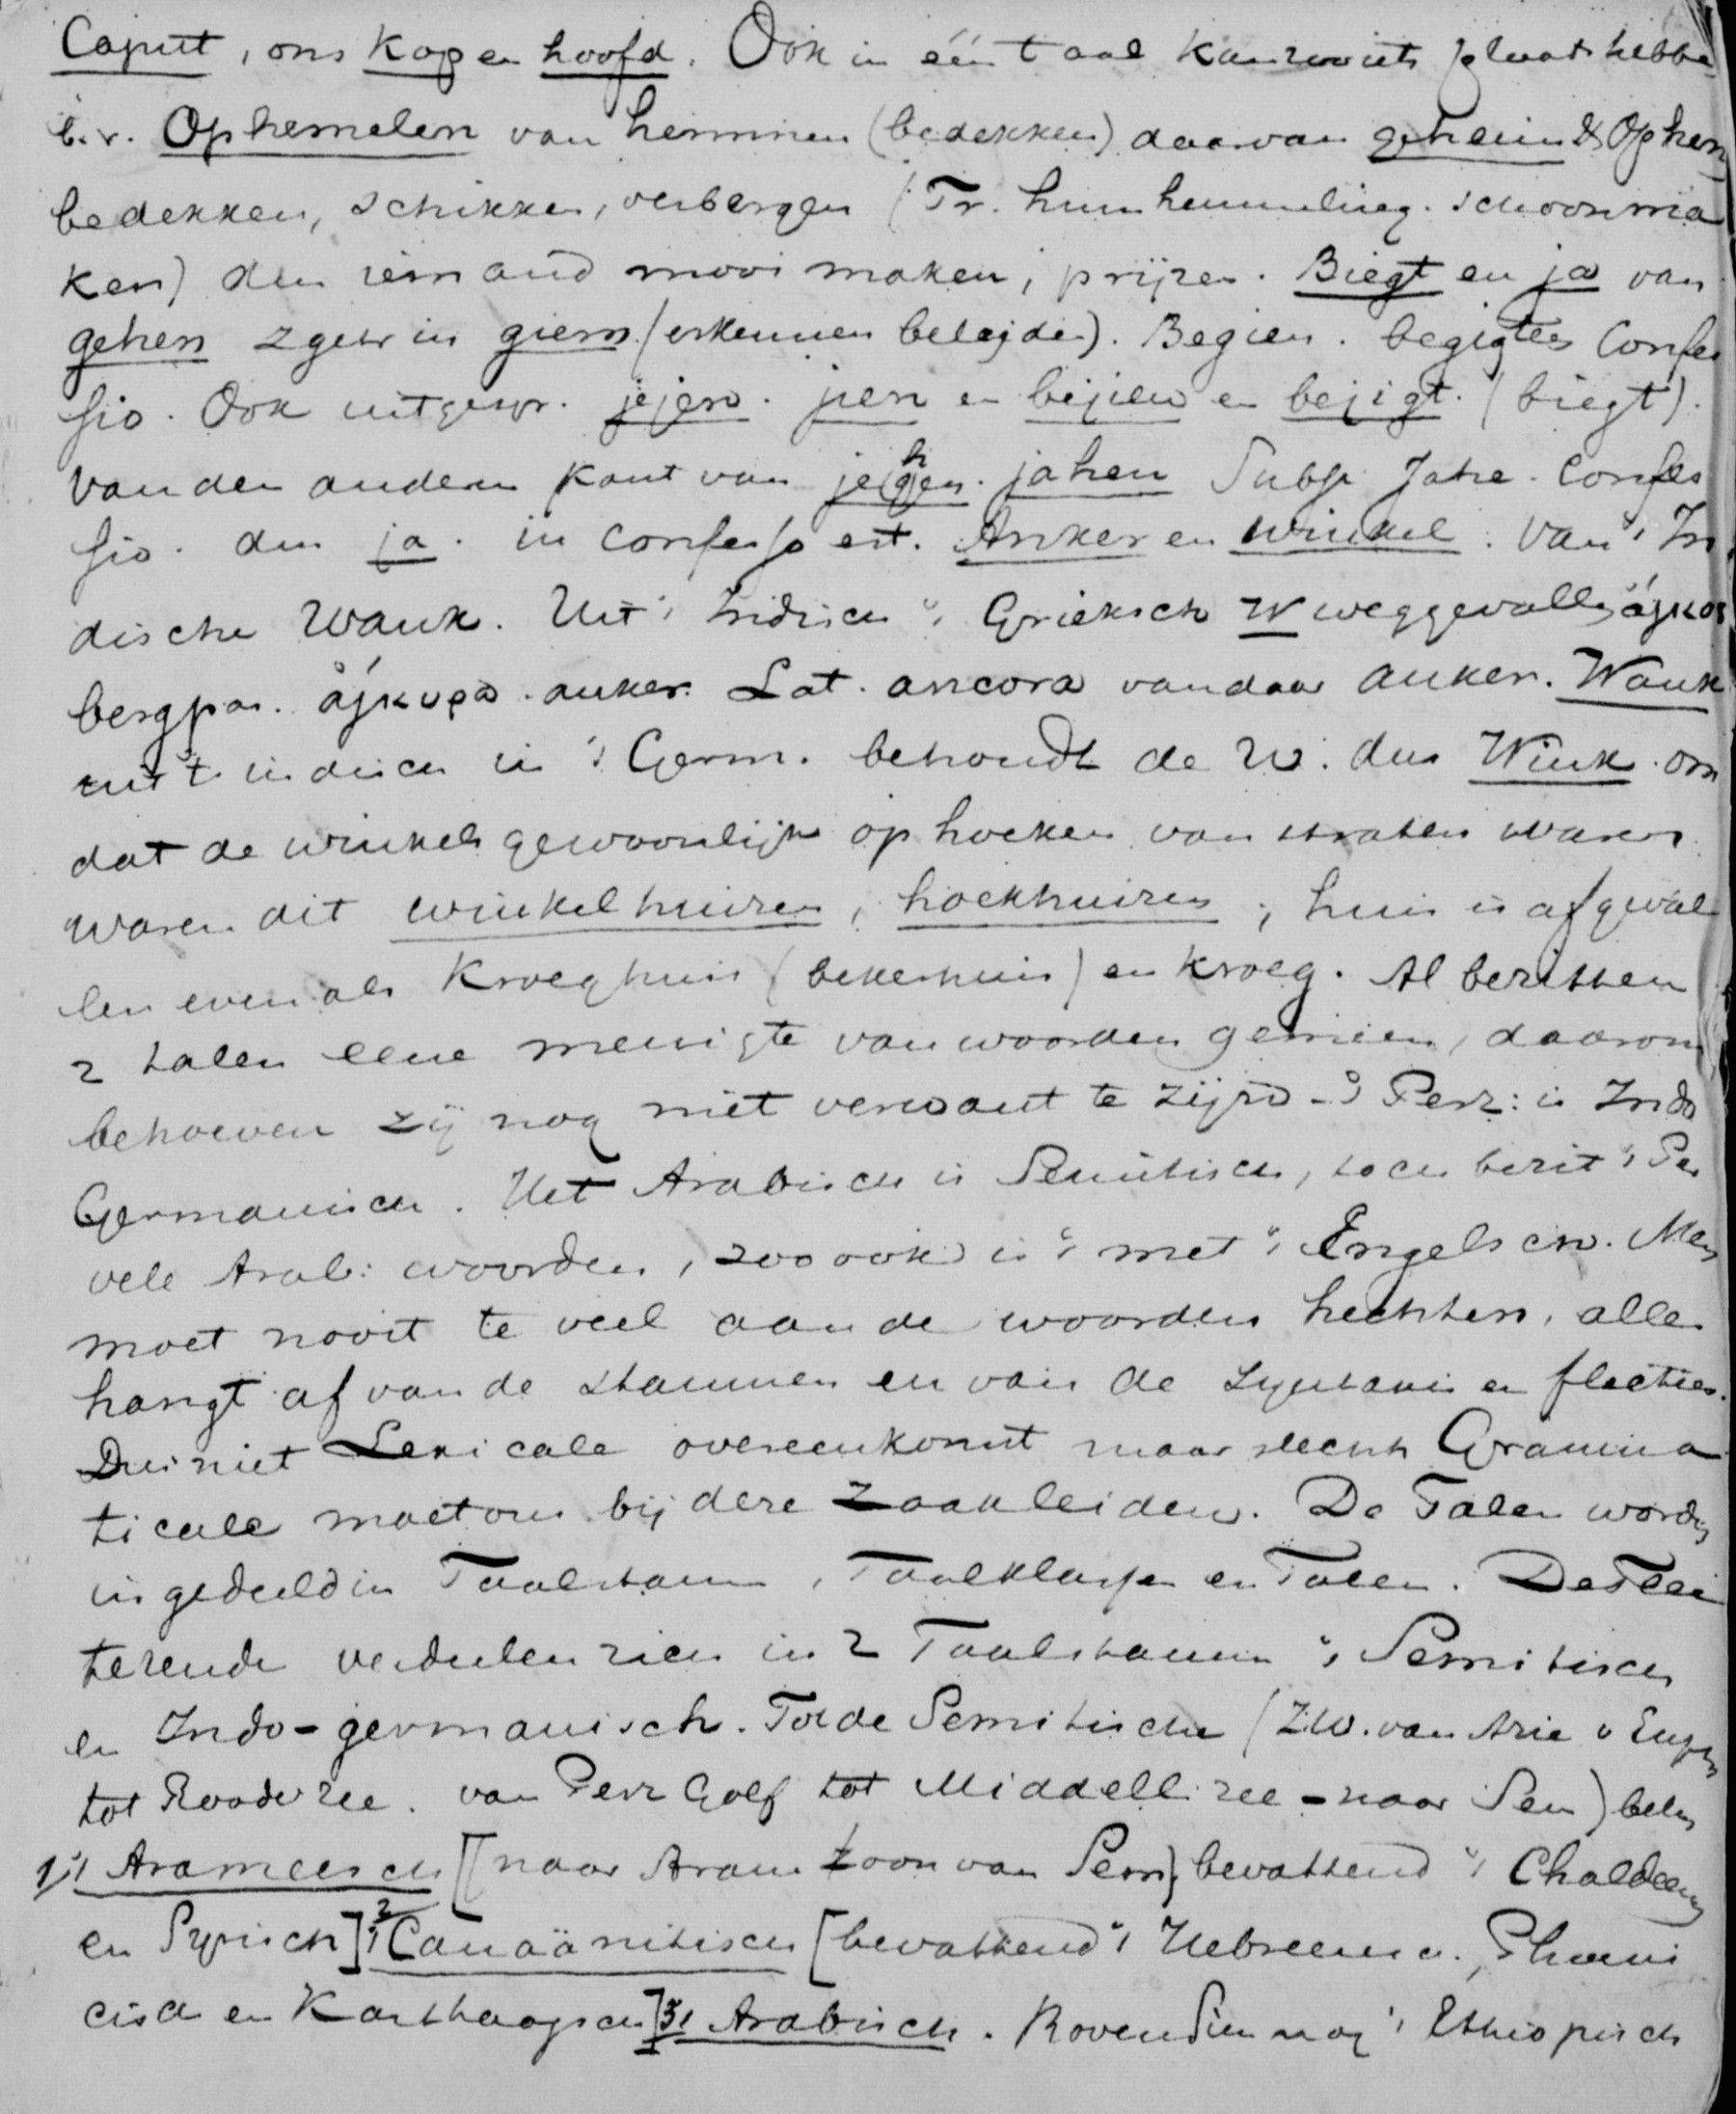 Caput, ons Kop en hoofd. Ook in één taal kan zooiets plaats hebben
b.v. Ophemelen van hemmen (bedekken) daarvan geheim &
bedekken, schikken, verbergen (Tr. hun hemmeling. schoonma
ken) den iemand mooi maken, prijzen. Biegt en ja van
gehen zgetr in giem (erkennen belejden). Begien. begigtes Confes
sio. Ook uitgespr. jejen. jien en bejien en bejigt. (biegt).
Van den anderen kant van jehen. jahen Subst. Jahe. Confes
sio. dus ja. in confesso est. Anker en winkel. Van 't In
dische Wank. Uit 't Indisch 't Grieksch W weggevallen ἄγκος
bergpas. ἄγκυρα. anker. Lat. ancora vandaar anker. Wank
uit 't indisch in 't Germ. behoudt de W. dus Wink. om
dat de winkels gewoonlijk op hoeken van straten waren
waren dit winkelhuizen, hoekhuizen; huis is afgeval
len even als Kroeghuis (bekerhuis) en kroeg. Al bezitten
2 talen eene menigte van woorden gemeen, daarom
behoeven zij nog niet verwant te zijn - 't Perz: is Indo
Germanisch. Het Arabisch is Semitisch, toch bezit 't Per
vele Arab: woorden, zoo ook is 't met 't Engelsch. Men
moet nooit te veel aan de woorden hechten, alles
hangt af van de stammen en van de syntaxis en flecties.
Dus niet Lexicale overeenkomst maar slechts Gramma
ticale moet ons bij deze zaak leiden. De Talen worden
ingedeeld in Taalstam, Taalklassen en Talen. De Flec
terende verdeelen zich in 2 Taalstammen 't Semitisch
en Indo-germanisch. Tot de Semitische (Z.W. van Azie v Euph
tot Roode zee. van Perz Golf tot Middell. zee - naar Sem) beh
1) 't Arameesch [naar Aram zoon van Sem} bevattend 't Chaldeeuws
en Syrisch] 2 't Canaänitisch [bevattend 't Hebreeuwsch. Phoeni
cisch en Karthaagsch] 3 't Arabisch. Bovendien nog 't Ethiopisch